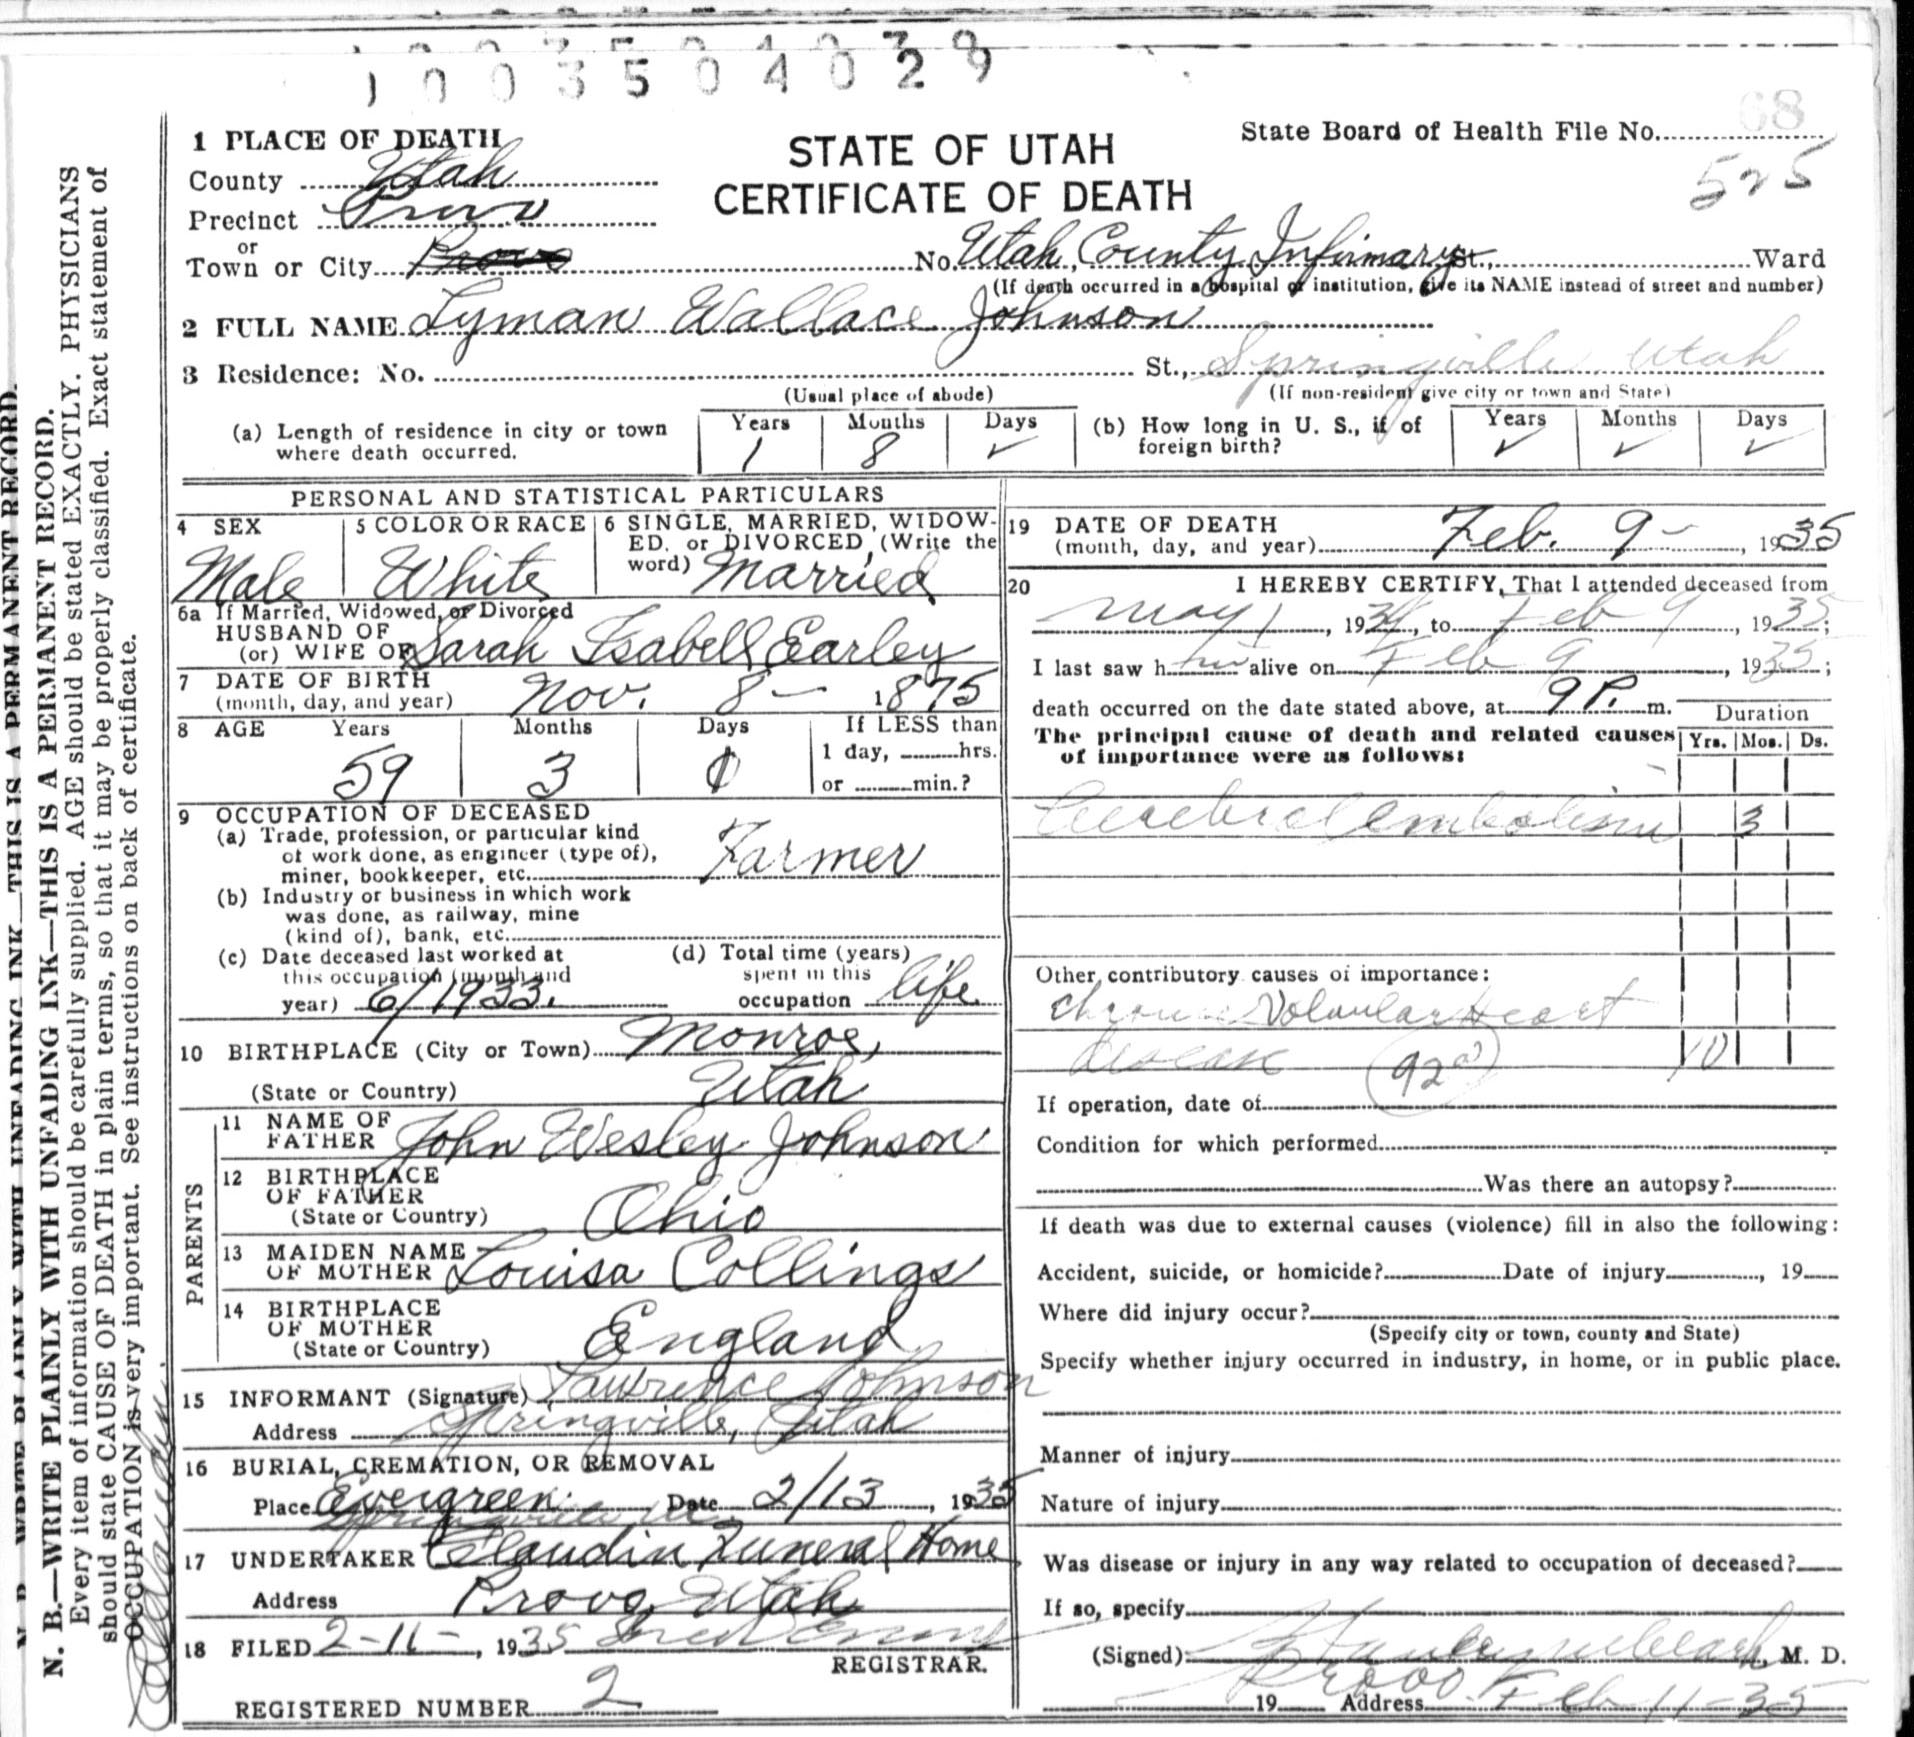 1003504029
68
1 PLACE OF DEATH
STATE OF UTAH
CERTIFICATE OF DEATH
State Board of Health File No.
525
County Utah
Precinct Provo
or
Town or City Provo No. Utah County Infirmary St., Ward
(If death occurred in a hospital or institution, give its NAME instead of street and number)
2 FULL NAME Lyman Wallace Johnson
3 Residence: No. St., Springville Utah
(Usual place of abode) (If non-resident give city or town and State)
(a) Length of residence in city or town where death occurred. Years 1 Months 8 Days ✓
(b) How long in U. S., if of foreign birth? Years ✓ Months ✓ Days ✓
PERSONAL AND STATISTICAL PARTICULARS
4 SEX Male
5 COLOR OR RACE White
6 SINGLE, MARRIED, WIDOW-
ED, or DIVORCED, (Write the
word) Married
6a If Married, Widowed, or Divorced
HUSBAND OF
(or) WIFE OF Sarah Isabell Earley
7 DATE OF BIRTH
(month, day, and year) Nov. 8 - 1875
8 AGE Years Months Days If LESS than
59 3 1 1 day, hrs.
or min.?
9 OCCUPATION OF DECEASED
(a) Trade, profession, or particular kind
of work done, as engineer (type of),
miner, bookkeeper, etc. Farmer
(b) Industry or business in which work
was done, as railway, mine
(kind of), bank, etc.
(c) Date deceased last worked at
this occupation (month and
year) 6/1933.
(d) Total time (years)
spent in this
occupation life
10 BIRTHPLACE (City or Town) Monroe,
(State or Country) Utah
PARENTS
11 NAME OF
FATHER John Wesley Johnson
12 BIRTHPLACE
OF FATHER
(State or Country) Ohio
13 MAIDEN NAME
OF MOTHER Louisa Collings
14 BIRTHPLACE
OF MOTHER
(State or Country) England
15 INFORMANT (Signature) Lawrence Johnson
Address Springville, Utah
16 BURIAL, CREMATION, OR REMOVAL
Place Evergreen Date 2/13, 1935
Springville Ut.
17 UNDERTAKER Claudin Funeral Home
Address Provo Utah
18 FILED 2-11-, 1935
REGISTRAR.
REGISTERED NUMBER 2
19 DATE OF DEATH
(month, day, and year) Feb. 9 - , 1935
20 I HEREBY CERTIFY, That I attended deceased from
May 1, 1934, to Feb 9, 1935;
I last saw him alive on Feb 9, 1935;
death occurred on the date stated above, at 9 P. m.
Duration
The principal cause of death and related causes Yrs. Mos. Ds.
of importance were as follows:
Cerebral embolism 3
Other contributory causes of importance:
chronic Volvular Heart
disease 92a 10
If operation, date of
Condition for which performed
Was there an autopsy?
If death was due to external causes (violence) fill in also the following:
Accident, suicide, or homicide? Date of injury , 19
Where did injury occur?
(Specify city or town, county and State)
Specify whether injury occurred in industry, in home, or in public place.
Manner of injury
Nature of injury
Was disease or injury in any way related to occupation of deceased?
If so, specify
(Signed) , M. D.
Provo
19 Address Feb 11-35
N. B.—WRITE PLAINLY WITH UNFADING INK—THIS IS A PERMANENT RECORD.
N. B.—WRITE PLAINLY WITH UNFADING INK—THIS IS A PERMANENT RECORD.
Every item of information should be carefully supplied. AGE should be stated EXACTLY. PHYSICIANS
should state CAUSE OF DEATH in plain terms, so that it may be properly classified. Exact statement of
OCCUPATION is very important. See instructions on back of certificate.